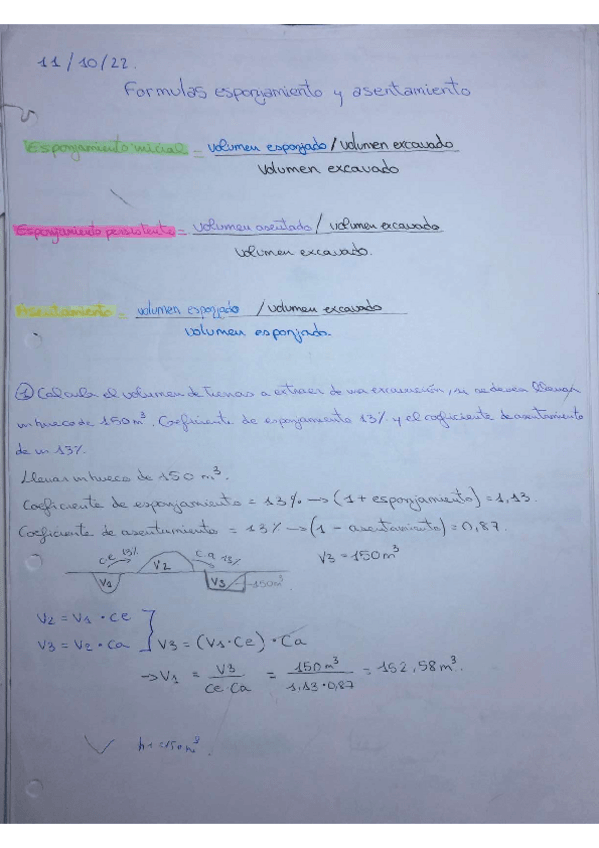 11/10/22.
Formulas esponjamiento y asentamiento
Esponjamiento inicial = volumen esponjado / volumen excavado
volumen excavado
Esponjamiento persistente = volumen asentado / volumen excavado
volumen excavado.
Asentamiento = volumen esponjado / volumen excavado
volumen esponjado.
① Calcula el volumen de tierras a extraer de una excavación, si se desea llenar
un hueco de 150 m³. Coeficiente de esponjamiento 13% y el coeficiente de asentamiento
de un 13%.
Llenar un hueco de 150 m³.
Coeficiente de esponjamiento = 13% → (1 + esponjamiento) = 1,13.
Coeficiente de asentamiento = 13% → (1 - asentamiento) = 0,87.
ce 13% ca 13% V3 = 150 m³
V1 V2 V3 150m³.
V2 = V1 · Ce
V3 = V2 · Ca } V3 = (V1 · Ce) · Ca
→ V1 = V3 / Ce · Ca = 150 m³ / 1,13 · 0,87 = 152,58 m³.